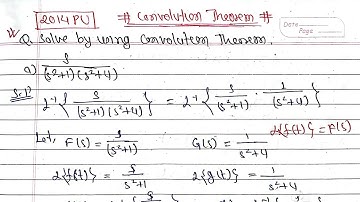 2014 PU # Convolution Theorem #
Date
Page
Q. Solve by using Convolution Theorem.
a) s/((s²+1)(s²+4))
Solⁿ 2⁻¹{s/((s²+1)(s²+4))} = 2⁻¹{s/(s²+1) · 1/(s²+4)}
Let, F(s) = s/(s²+1) G(s) = 1/(s²+4) 2{f(t)} = F(s)
2{f(t)} = s/(s²+1) 2{g(t)} = 1/(s²+4)